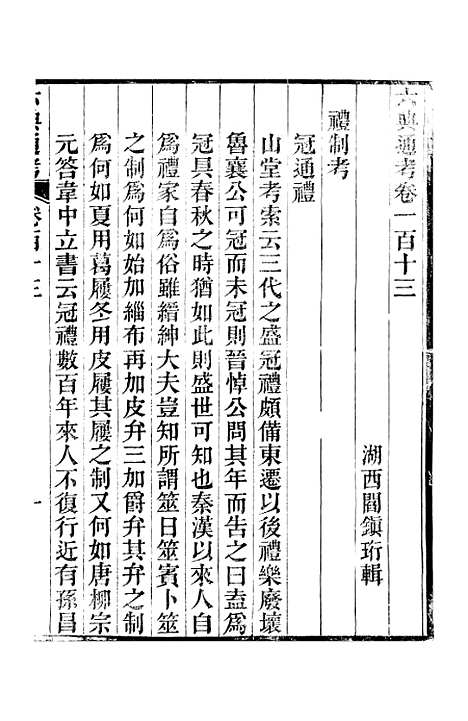 六典通考卷一百十三
湖西閻鎮珩輯
禮制考
冠通禮
山堂考索云三代之盛冠禮頗備東遷以後禮樂廢壞
魯襄公可冠而未冠則晉悼公問其年而告之曰盍為
冠具春秋之時猶如此則盛世可知也秦漢以來人自
為禮家自為俗雖縉紳大夫豈知所謂筮日筮賓卜筮
之制為何如始加緇布再加皮弁三加爵弁其弁之制
為何如夏用葛屨冬用皮屨其屨之制又何如唐柳宗
元答韋中立書云冠禮數百年來人不復行近有孫昌
六典通考
卷百十三
一